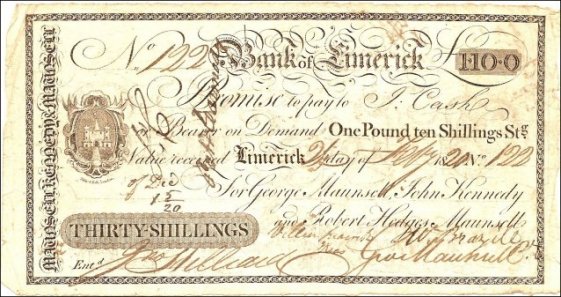 MAUNSELL KENNEDY & MAUNSELL
No. 122 Bank of Limerick £1·10·0
I Promise to pay to J: Cash
or Bearer on Demand One Pound ten Shillings Stg.
Value received Limerick day of Feby 1820 No. 122
For George Maunsell, John Kennedy
and Robert Hedges Maunsell
THIRTY-SHILLINGS
Entd.